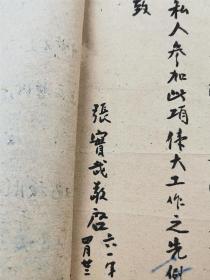 私人参加此項偉大工作之先例
致
張實哉敬啓
六一年
四月廿三